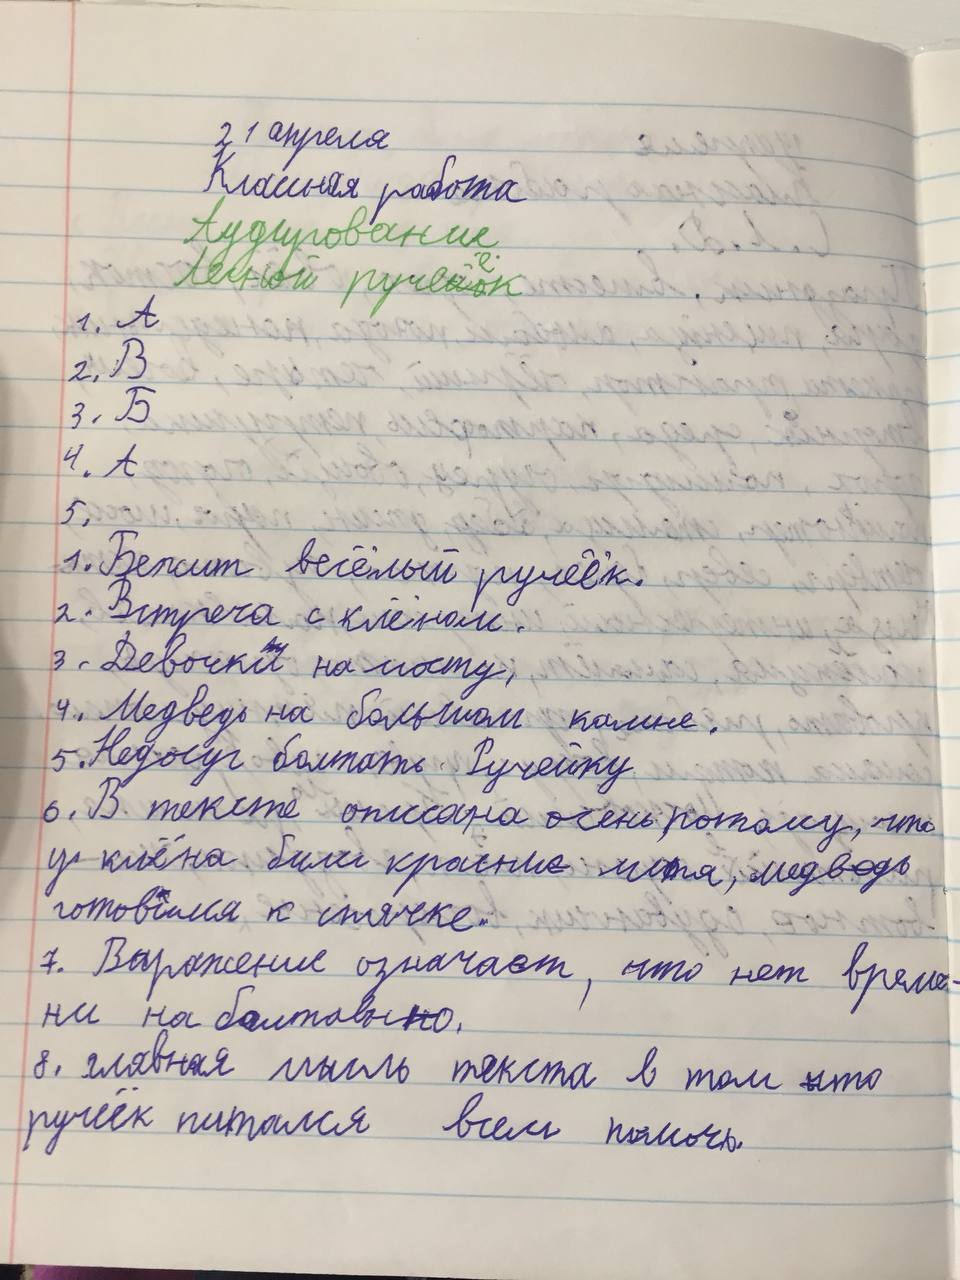 21 апреля
Классная работа
Аудирование
Лесной ручеёк
1. А
2. В
3. Б
4. А
5.
1. Бежит весёлый ручеёк.
2. Встреча с клёном.
3. Девочки на мосту,
4. Медведь на большом камне.
5. Недосуг болтать Ручейку
6. В тексте описана очень потому, что
у клёна били красние медведь
готовился к спячке.
7. Выражение означает, что нет време-
ни на болтовню.
8. главная мысль текста в том что
ручеёк питался всем помочь.